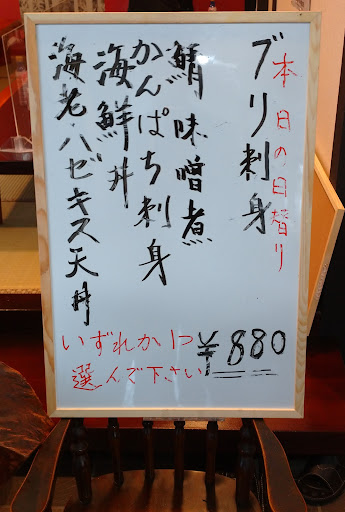 本日の日替り
ブリ刺身
鯖味噌煮
かんぱち刺身
海鮮丼
海老ハゼキス天丼
いずれか1つ
選んで下さい
¥880